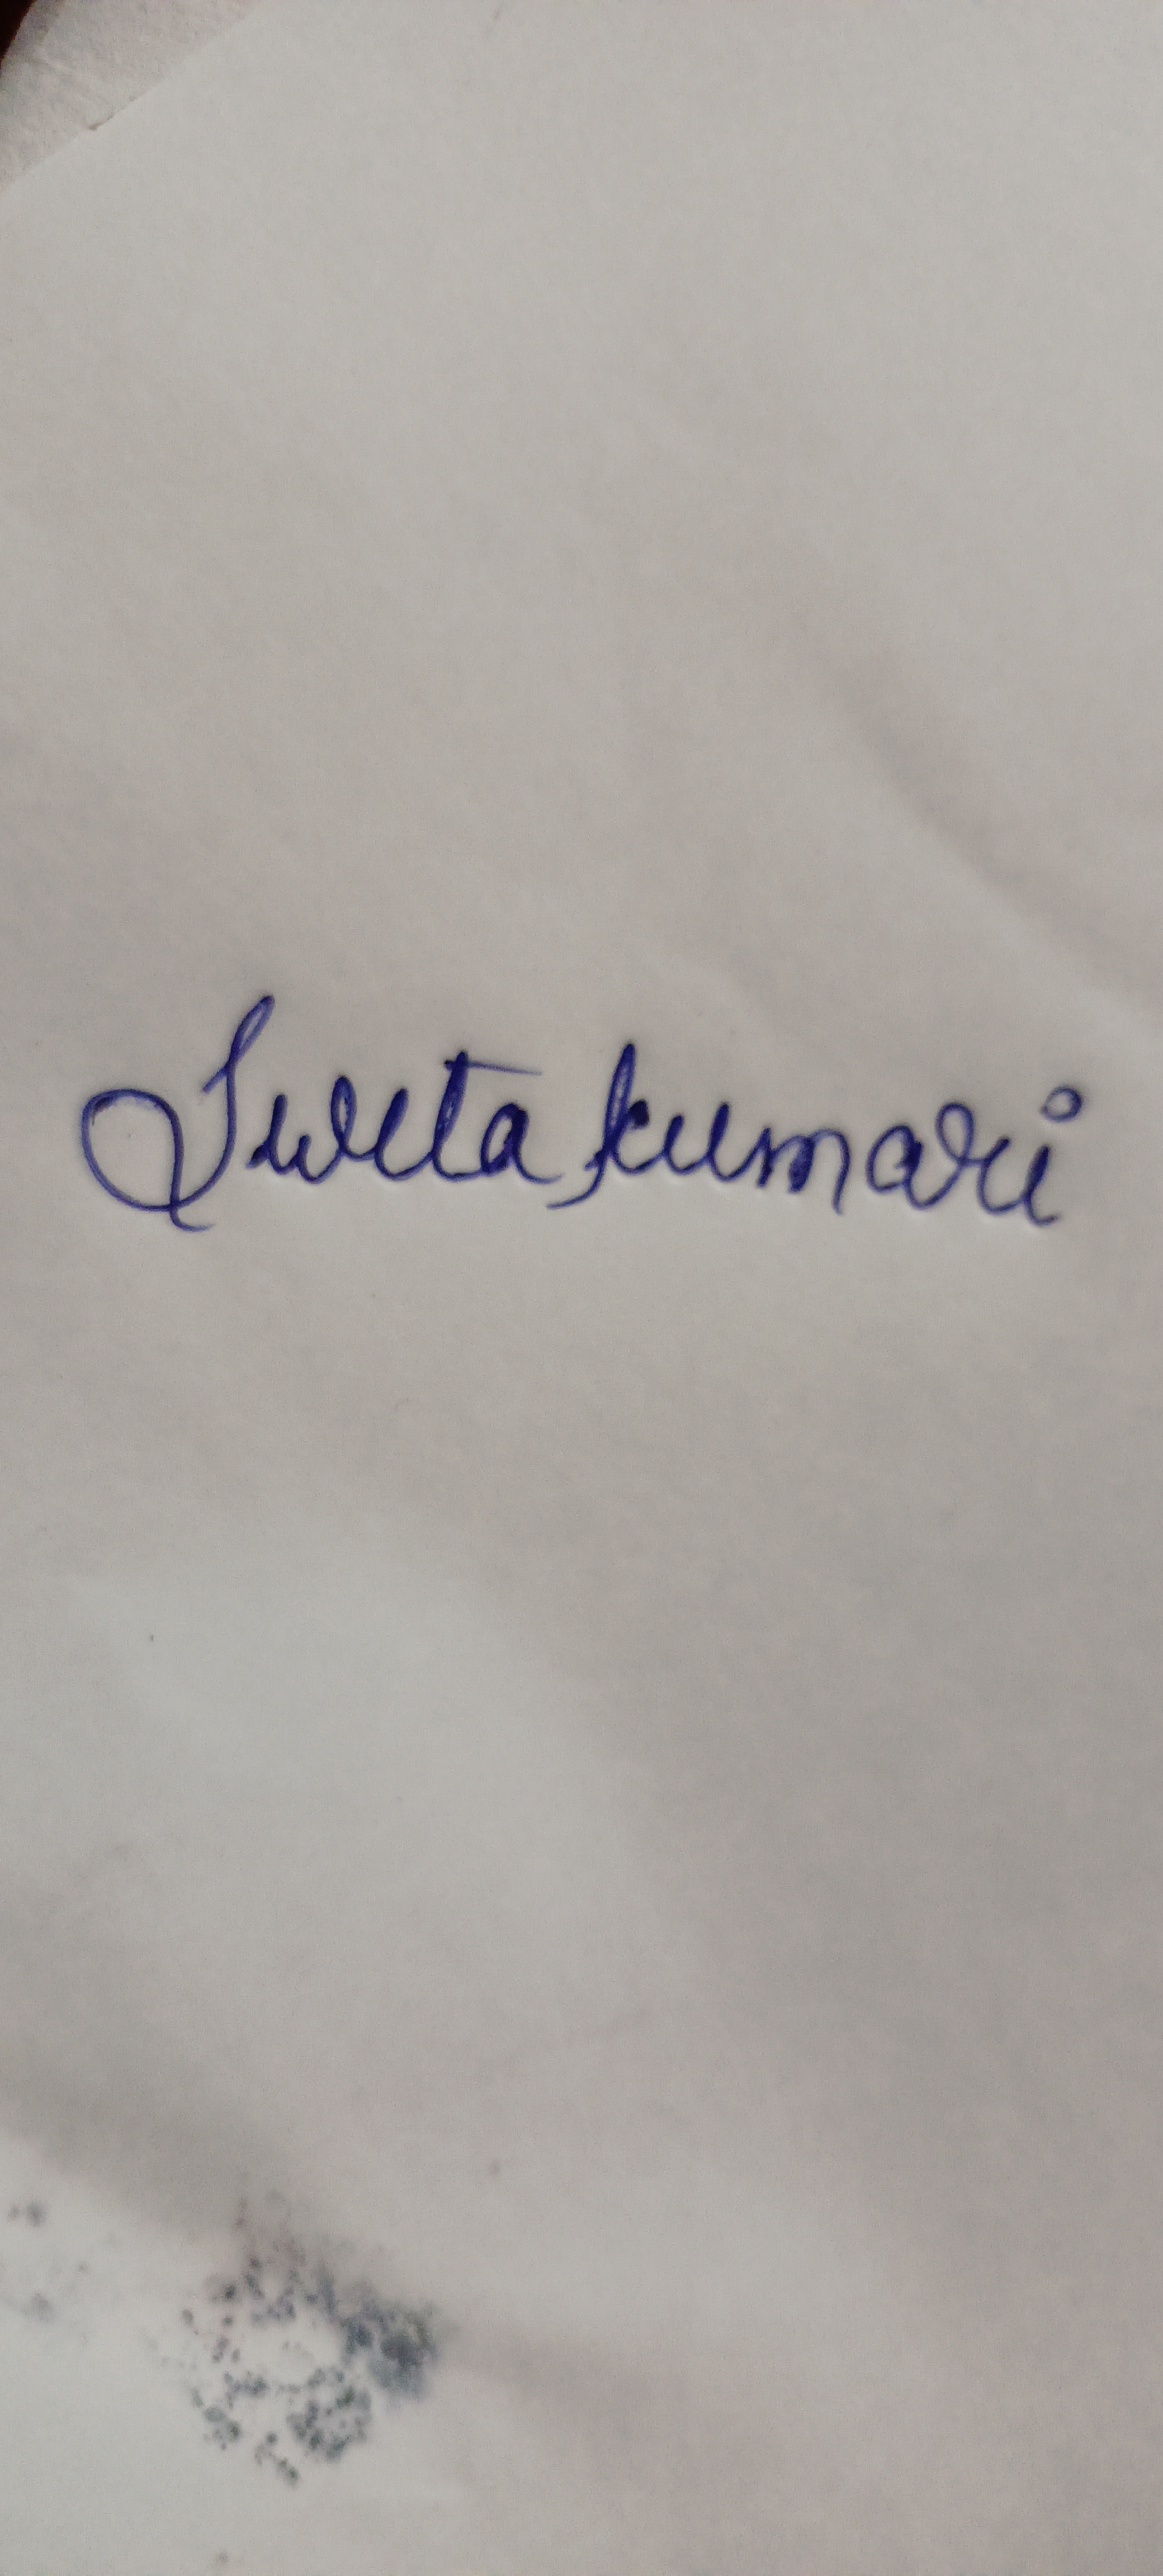 Sweta kumari